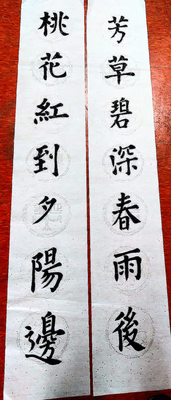 芳草碧深春雨後
桃花紅到夕陽邊